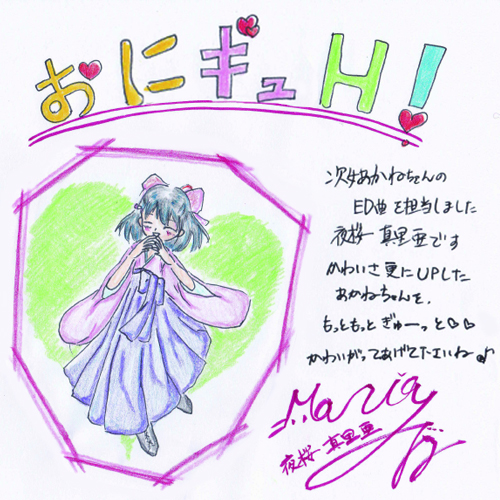 おにギュH!
次女あかねちゃんの
ED曲を担当しました
夜桜 真里亜です
かわいさ更にUPした
あかねちゃんを、
もっともっとぎゅーっと♡♡
かわいがってあげて下さいね♪
Maria
夜桜 真里亜